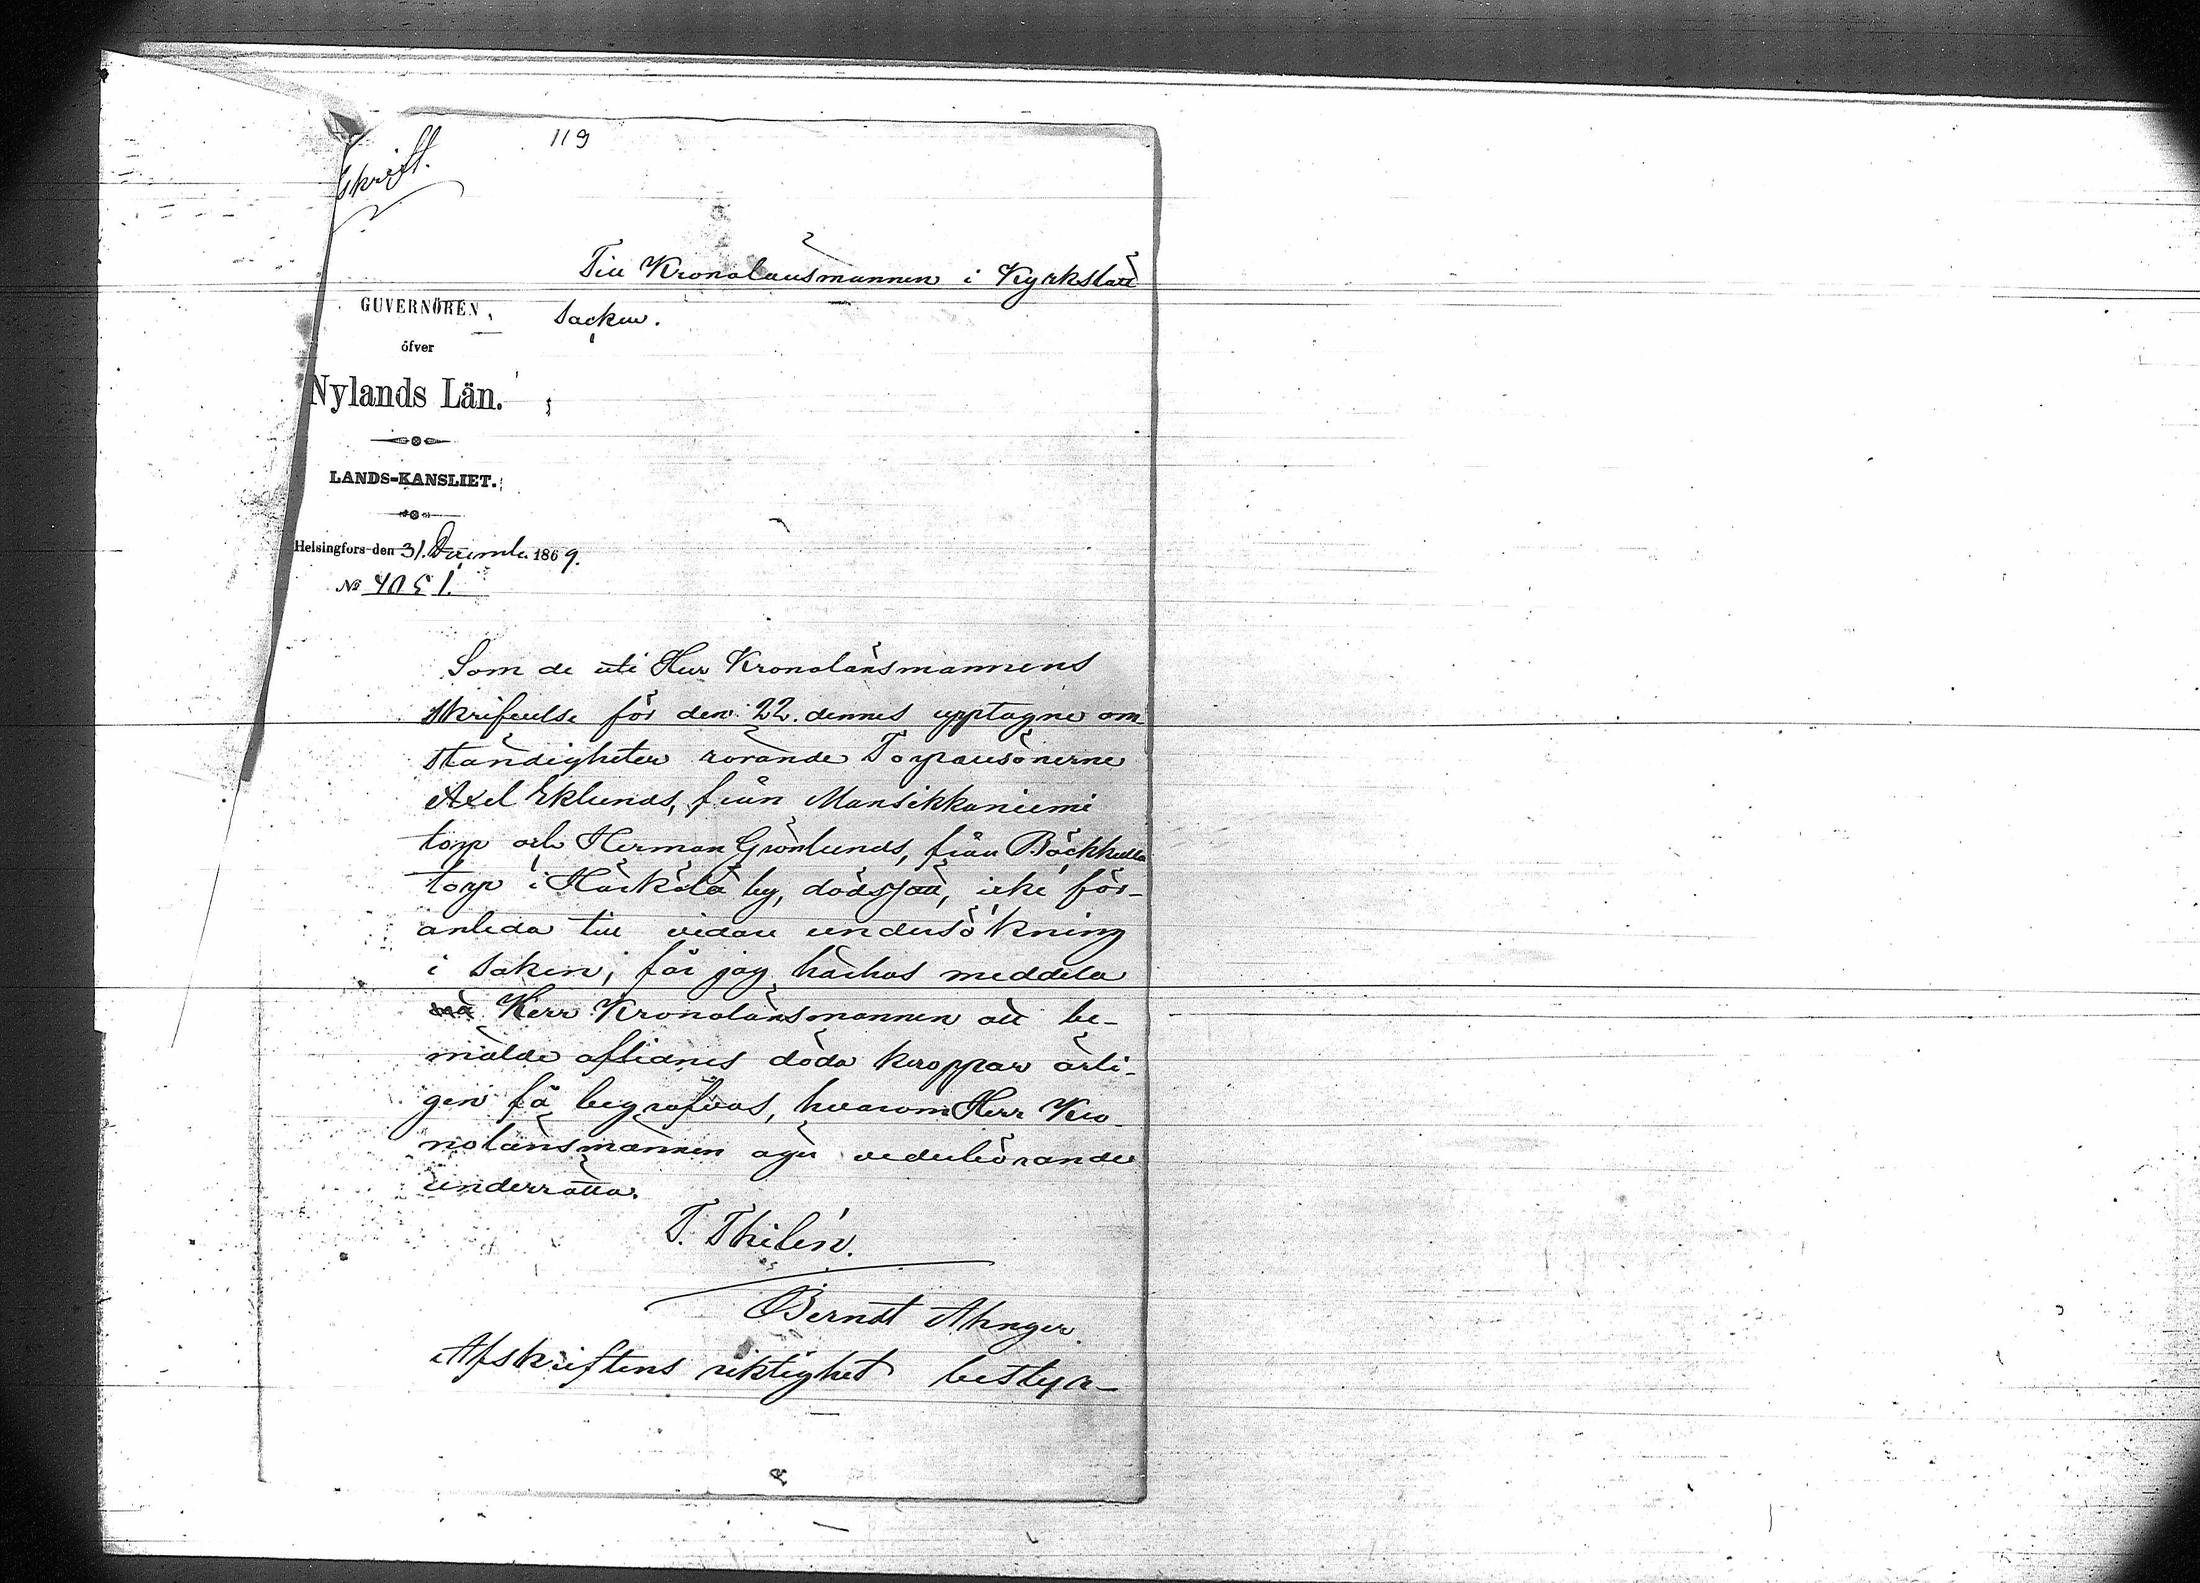 119
skrift.
Till Kronolänsmannen i Kyrkslätt
Socken.
GUVERNÖREN
öfver
Nylands Län.
LANDS-KANSLIET.
Helsingfors den 31. Decemb. 1869.
No 4051.
Som de uti Herr Kronolänsmannens
skrifvelse för den 22. dennes upptagne om-
ständigheter rörande Torparesönerne
Axel Eklunds, från Mansikkaniemi
torp och Herman Grönlunds, från Böckkulla
torp i Härkölä by, dödsfall, icke för-
anleda till vidare undersökning
i saken; får jag härhos meddela
Herr Kronolänsmannen att be-
mälde aflidnes döda kroppar ärli-
gen få begrafvas, hvarom Herr Kro-
nolänsmannen äger vederbörande
underrätta.
T. Thilén.
Berndt Ahnger.
Afskriftens riktighet bestyr-